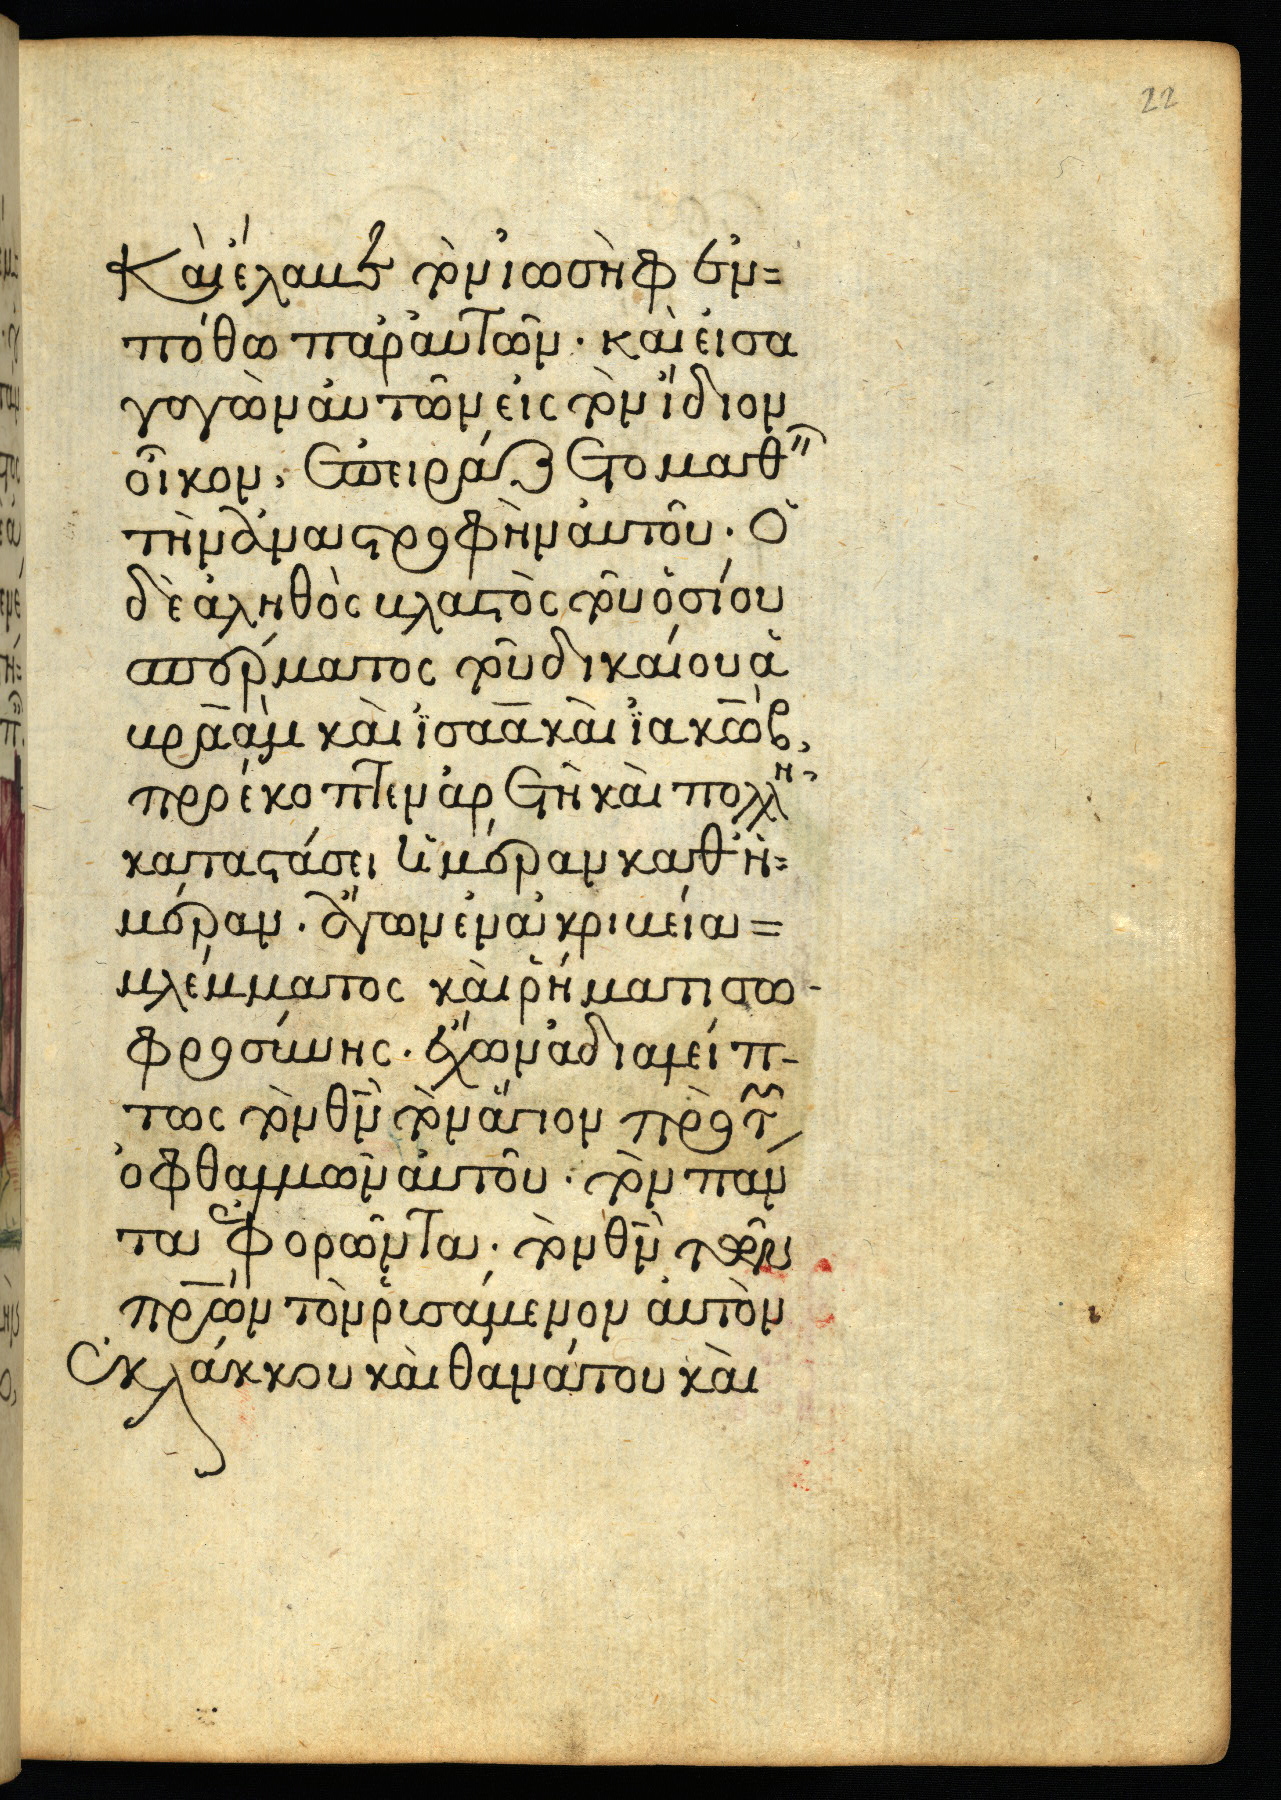 22
Καὶ ἔλαβε τὸν ἰωσὴφ ἐν=
πόθω παρ' αὐτῶν. καὶ εἰσα
γογὼν αὐτὸν εἰς τὸν ἴδιον
οἶκον, ἐπειράζετο μαθεῖν
τὴν ἀναστροφὴν αὐτοῦ. Ὁ
δὲ ἀληθὸς βλαστὸς τοῦ ὁσίου
σπέρματος τοῦ δικαίου ἀ
βραὰμ καὶ ἰσαὰκ καὶ ἰακὼβ,
προέκοπτεν ἀρετῆ καὶ πολλῆ
καταστάσει ἡμέραν καθ' ἡ=
μέραν. ἄγων ἐν ἀκριβείαι=
βλέμματος καὶ ῥήματι σω-
φροσύνης. ἔχων ἀδιαλείπ-
τως τὸν θν τὸν ἅγιον πρὸ τῶν
ὀφθαλμῶν αὐτοῦ. τὸν πάν
τα ἐφορῶντα. τὸν θν τῶν
πρων τὸν ῥισάμενον αὐτὸν
ἐκ λάκκου καὶ θανάτου καὶ